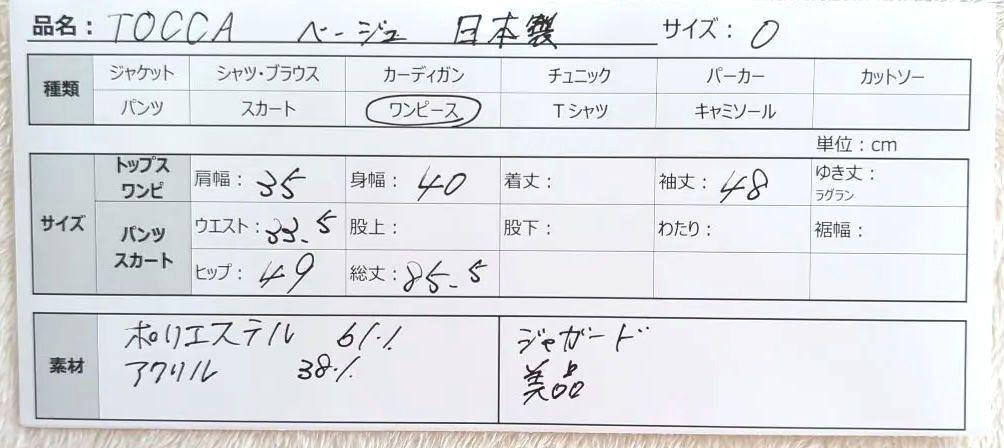 品名：TOCCA ベージュ 日本製 サイズ：0
種類 ジャケット シャツ・ブラウス カーディガン チュニック パーカー カットソー
パンツ スカート ワンピース Tシャツ キャミソール
単位：cm
サイズ トップス ワンピ 肩幅：35 身幅：40 着丈： 袖丈：48 ゆき丈： ラグラン
パンツ スカート ウエスト：33.5 股上： 股下： わたり： 裾幅：
ヒップ：49 総丈：85.5
素材 ポリエステル 61% ジャガード
アクリル 38% 美品